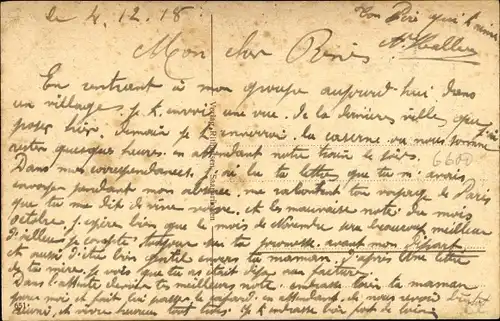 le 4.12.18
Ton Père qui t'aime
A. Haller
Mon cher René
En rentrant à mon groupe aujourd'hui dans
un village, je t'envoie une vue de la dernière ville que j'ai
passé hier. demain je t'enverrai la caserne ou nous sommes
restés quelques heures en attendant notre train le soir.
6600
Dans mes correspondances j'ai lu ta lettre que tu m'avais
envoyé pendant mon absence me racontant ton voyage de Paris
que tu me dit de vive voix, et les mauvaises note du mois
Octobre, j'espère bien que le mois de Novembre sera beaucoup meilleur
D'ailleurs je compte toujours sur ta promesse avant mon Départ
et aussi d'être bien gentil envers ta maman. D'après une lettre
de ta mère, je vois que tu as était
Dans l'attente de tes meilleurs note. embrasse bien ta maman
pour moi et en attendant de nous revoir bientôt
réuni, et vivre heureux tout trois. Je t'embrasse bien fort de loin
651